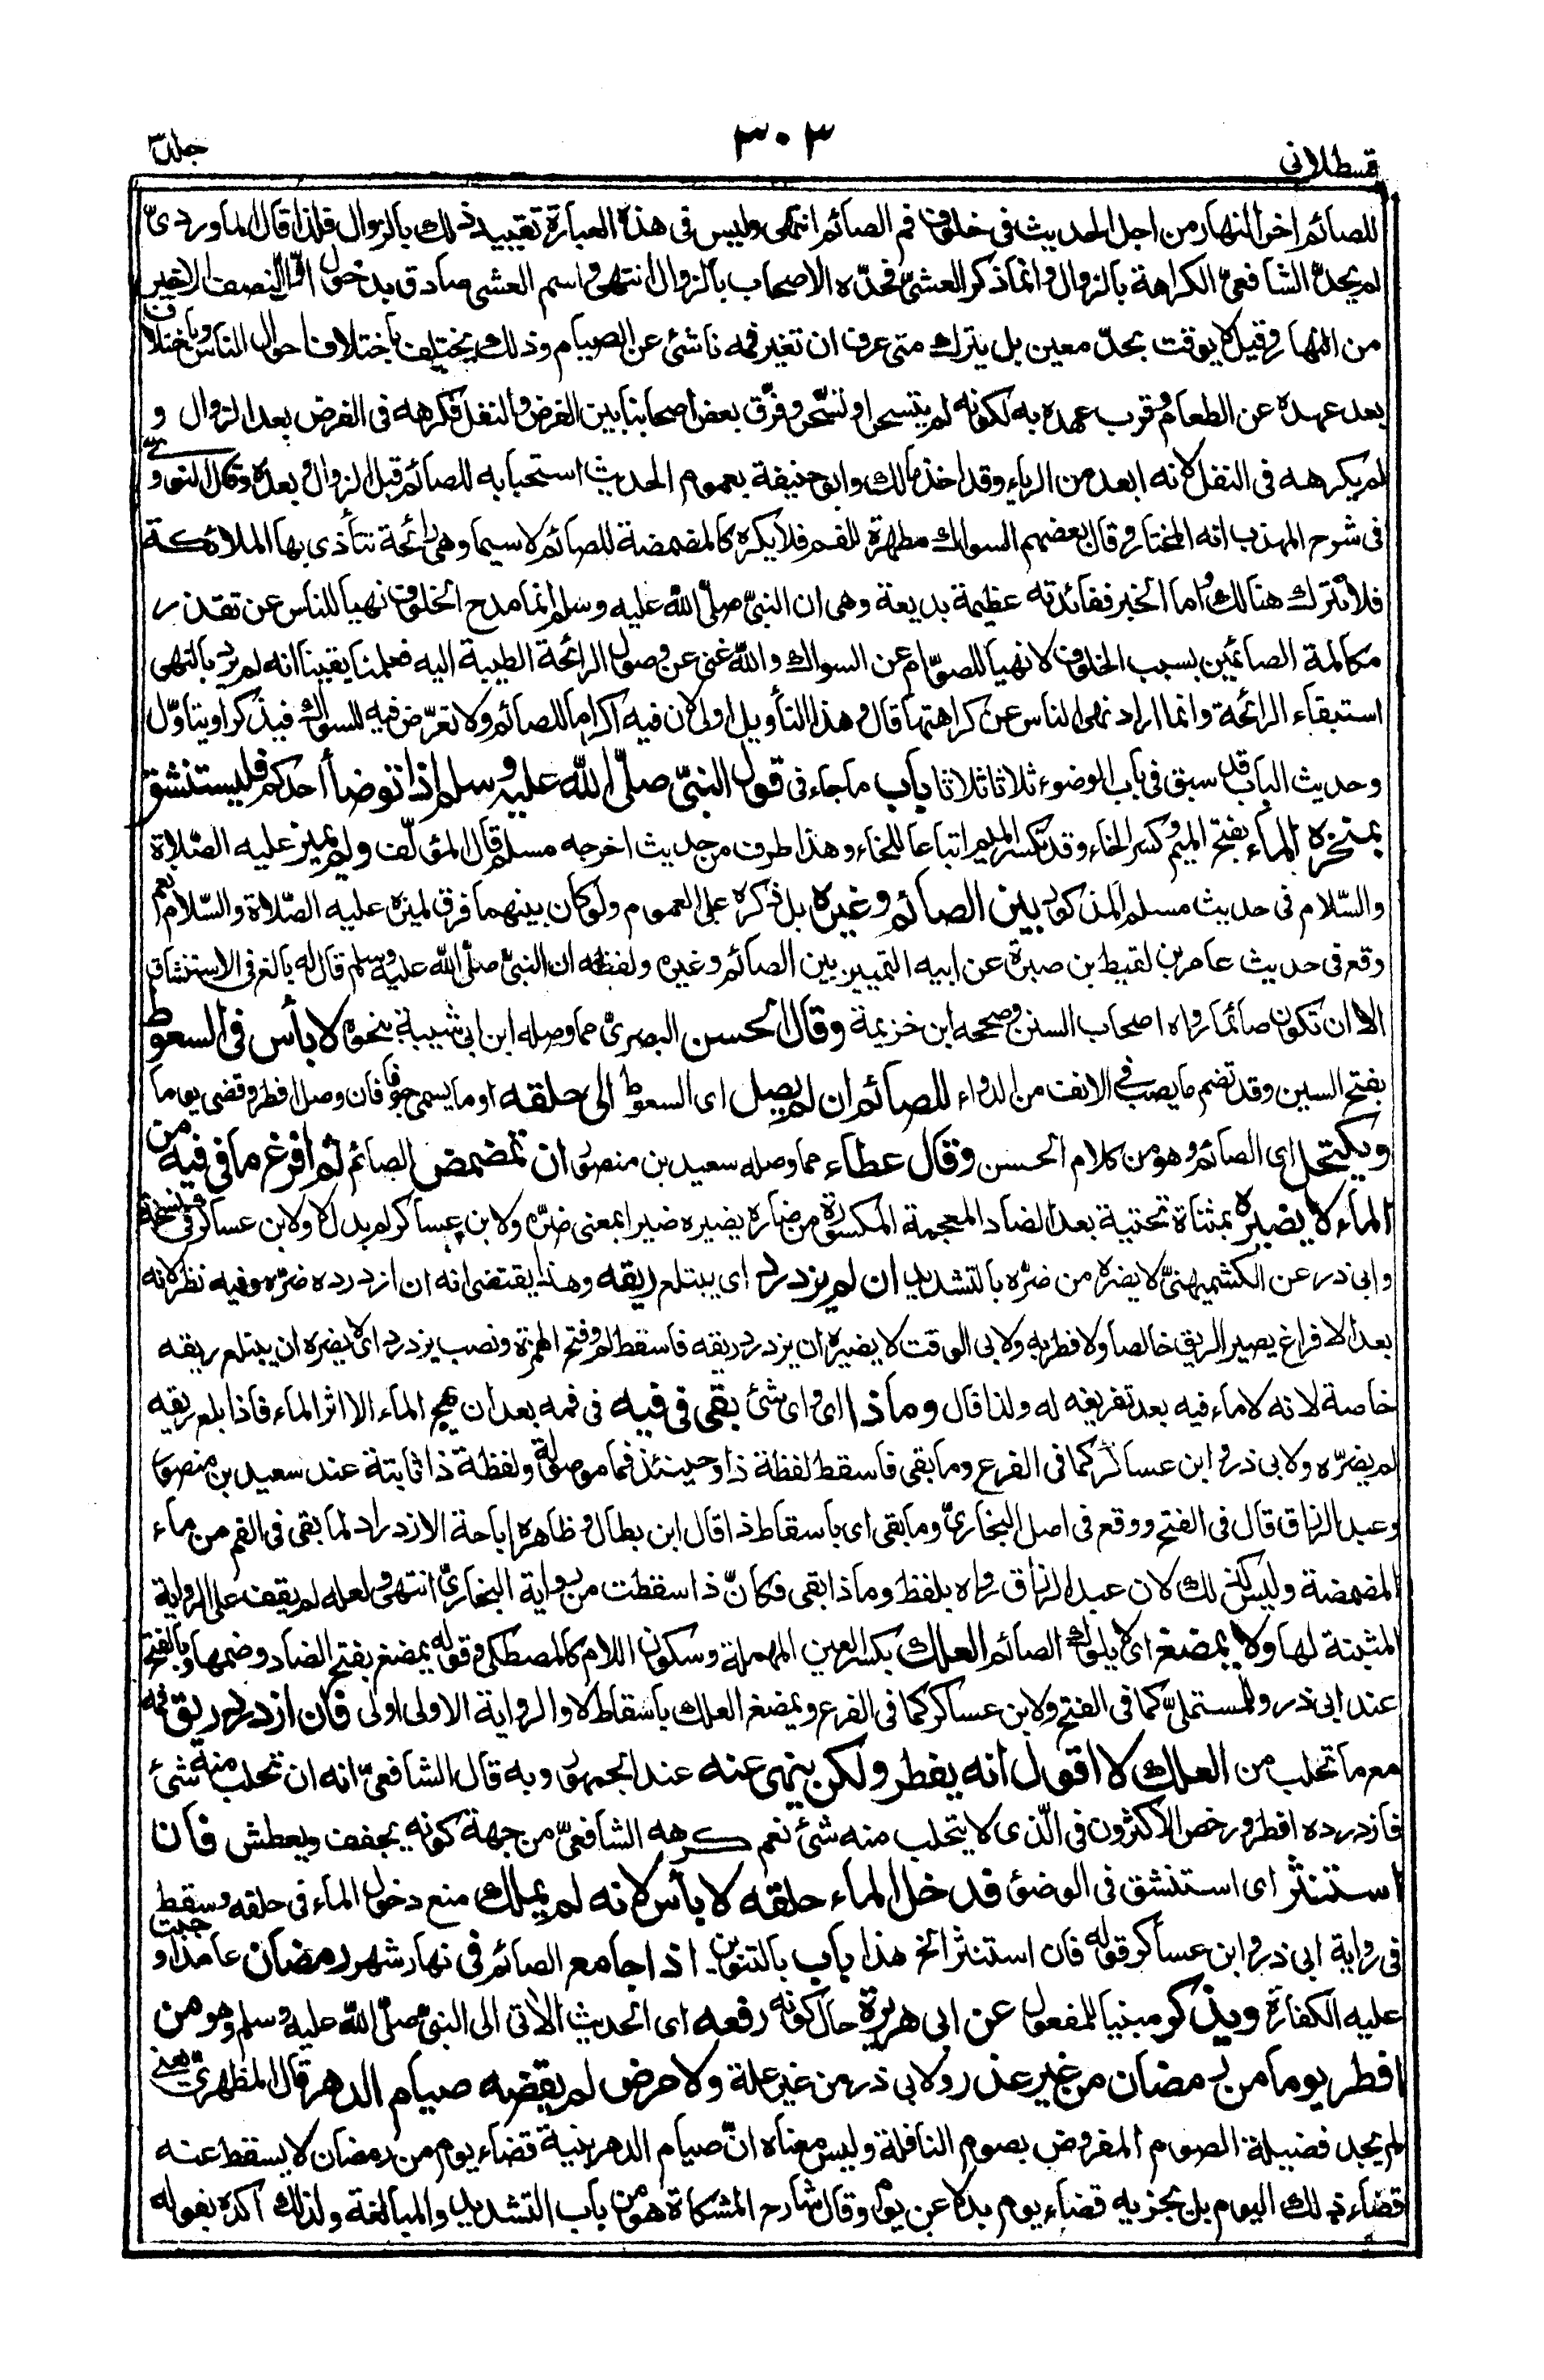 قسطلاني
٣٠٣
جلد٣
للصائم اخر النهار من اجل الحديث في خلوف فم الصائم انتهى وليس في هذه العبارة تقييد ذلك بالزوال فلذا قال الماوردىّ
لم يحدّ الشافعىّ الكراهة بالزوال وانما ذكر العشىّ فحدّه الاصحاب بالزوال انتهى واسم العشى صادق بدخول اوّل النصف الاخير
من النهار وقيل لا يوقت بحدّ معين بل يترك متى عرف ان تغير فمه ناشئ عن الصيام وذلك يختلف باختلاف احوال الناس وباختلاف
بعد عهده عن الطعام وقرب عهده به لكونه لم يتسحر او تسحّر وفرّق بعض اصحابنا بين الفرض والنفل فكرهه في الفرض بعد الزوال و
لم يكرهه في النفل لانه ابعد من الرياء وقد اخذ مالك وابو حنيفة بعموم الحديث استحبابه للصائم قبل الزوال وبعده وقال النووىّ
في شرح المهذب انه المختار وقال بعضهم السواك مطهرة للفم فلا يكره كالمضمضة للصائم لا سيما وهي رائحة تتأذى بها الملائكة
فلا تترك هنالك واما الخبر ففائدته عظيمة بديعة وهى ان النبىّ صلّى الله عليه وسلم انما مدح الخلوف نهيا للناس عن تقذر
مكالمة الصائمين بسبب الخلوف لا نهيا للصوّام عن السواك والله غنى عن وصول الرائحة الطيبة اليه فعلمنا يقينا انه لم يرد بالنهى
استبقاء الرائحة وانما اراد نهى الناس عن كراهتها قال وهذا التأويل اولى لان فيه اكراما للصائم ولا تعرّض فيه للسواك فيذكر او يتاوّل
وحديث الباب قد سبق في باب الوضوء ثلاثا ثلاثا باب ما جاء فى قول النبىّ صلّى الله عليه وسلم اذا توضأ احدكم فليستنشق
بمنخره الماء بفتح الميم وكسر الخاء وقد تكسر الميم اتباعا للخاء وهذا طرف من حديث اخرجه مسلم قال المؤلّف ولم يميز عليه الصّلاة
والسّلام فى حديث مسلم المذكور بين الصائم وغيره بل ذكره على العموم ولو كان بينهما فرق لميزه عليه الصّلاة والسّلام نعم
وقع فى حديث عاصم بن لقيط بن صبرة عن ابيه التمييز بين الصائم وغيره ولفظه ان النبىّ صلّى الله عليه وسلم قال له بالغ فى الاستنشاق
الا ان تكون صائما رواه اصحاب السنن وصححه ابن خزيمة وقال الحسن البصرىّ مما وصله ابن ابى شيبة بنحوه لا بأس فى السعوط
بفتح السين وقد تضم ما يصب فى الانف من الدواء للصائم ان لم يصل اى السعوط الى حلقه او ما يسمى جوفا فان وصل افطر وقضى يوما
ويكتحل اى الصائم وهو من كلام الحسن وقال عطاء مما وصله سعيد بن منصور ان تمضمض الصائم ثم افرغ ما فى فيه من
الماء لا يضيره بمثناة تحتية بعد الضاد المعجمة المكسورة من ضاره يضيره ضيرا بمعنى ضرّه ولابن عساكر لم بدل لا ولابن عساكر فى نسخة
وابى ذر عن الكشميهنىّ لا يضره من ضرّه بالتشديد ان لم يزدرد اى يبتلع ريقه وهذا يقتضى انه ان ازدرده ضرّه وفيه نظر لانه
بعد الافراغ يصير الريق خالصا ولا فطر به ولابى الوقت لا يضيره ان يزدرد ريقه فاسقط لم وفتح الهمزة ونصب يزدرد اى لا يضره ان يبتلع ريقه
خاصة لانه لا ماء فيه بعد تفريغه له ولذا قال وماذا اى واى شئ بقى فى فيه فى فمه بعد ان يمج الماء الا اثر الماء فاذا بلع ريقه
لم يضرّه ولابى ذر وابن عساكر كما فى الفرع وما بقى فاسقط لفظة ذا وحينئذ فما موصولة ولفظة ذا ثابتة عند سعيد بن منصور
وعبد الرزاق قال فى الفتح ووقع فى اصل البخارىّ وما بقى اى باسقاط ذا قال ابن بطال وظاهره اباحة الازدراد لما بقى فى الفم من ماء
المضمضة وليس كذلك لان عبد الرزاق رواه بلفظ وماذا بقى فكانّ ذا سقطت من رواية البخارىّ انتهى ولعله لم يقف على الرواية
المثبتة لها ولا يمضغ اى لا يلوك الصائم العلك بكسر العين المهملة وسكون اللام كالمصطكى وقوله يمضغ بفتح الضاد وضمها وبالفتح
عند ابى ذر وللمستملىّ كما فى الفتح ولابن عساكر كما فى الفرع ويمضغ العلك باسقاط لا والرواية الاولى اولى فان ازدرد ريق فمه
مع ما تحلب من العلك لا اقول انه يفطر ولكن ينهى عنه عند الجمهور وبه قال الشافعىّ انه ان تحلب منه شئ
فازدرده افطر ورخص الاكثرون فى الّذى لا يتحلب منه شئ نعم كرهه الشافعىّ من جهة كونه يجفف ويعطش فان
استنثر اى استنشق فى الوضوء فدخل الماء حلقه لا بأس لانه لم يملك منع دخول الماء فى حلقه وسقط
فى رواية ابى ذر وابن عساكر قوله فان استنثر الخ هذا باب بالتنوين اذا جامع الصائم فى نهار شهر رمضان عامدا وجبت
عليه الكفارة ويذكر مبنيا للمفعول عن ابى هريرة حال كونه رفعه اى الحديث الاتى الى النبىّ صلّى الله عليه وسلم وهو من
افطر يوما من رمضان من غير عذر ولابى ذر من غير علة ولا مرض لم يقضه صيام الدهر قال المظهرىّ يعنى
لم يجد فضيلة الصوم المفروض بصوم النافلة وليس معناه انّ صيام الدهر بنية قضاء يوم من رمضان لا يسقط عنه
قضاء ذلك اليوم بل يجزيه قضاء يوم بدلا عن يوم وقال شارح المشكاة هو من باب التشديد والمبالغة ولذلك اكده بقوله